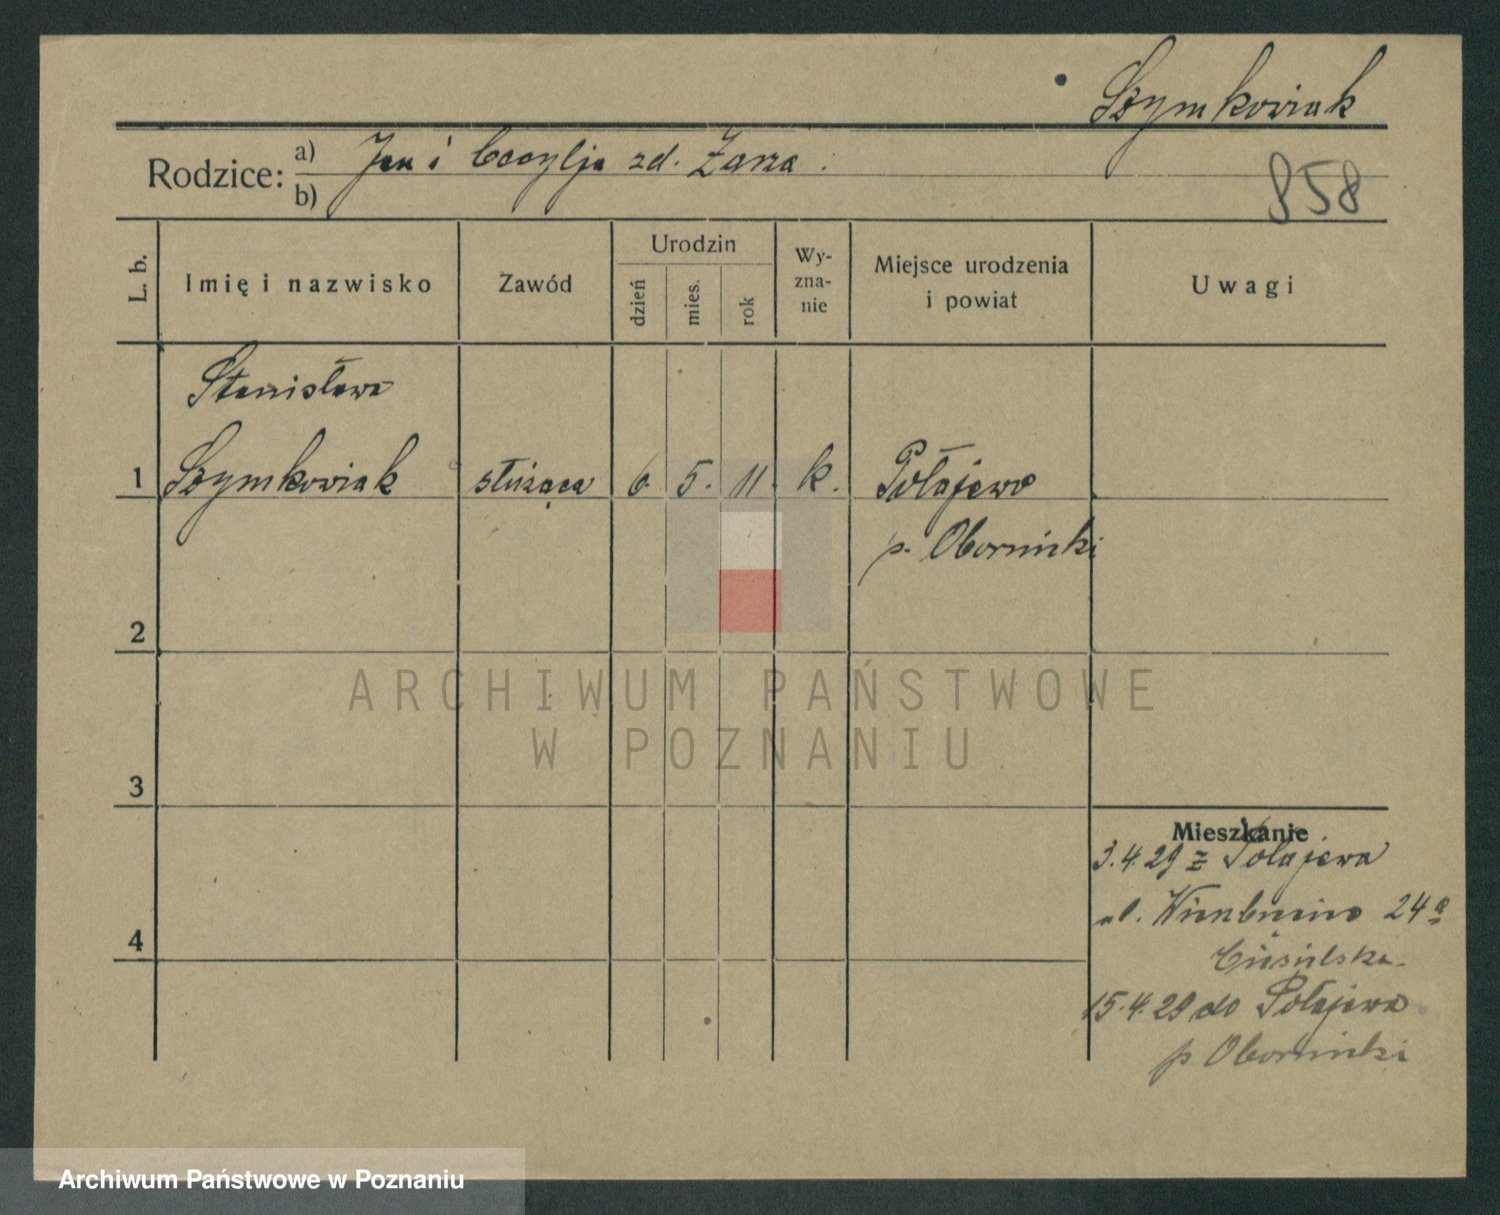 Szymkowiak
Rodzice: a) Jan i Cecylja zd. Zarza
b)
858
L. b.
Imię i nazwisko
Zawód
Urodzin
dzień
mies.
rok
Wy-
zna-
nie
Miejsce urodzenia
i powiat
Uwagi
Stanisława
1 Szymkowiak służąca 6. 5. 11. k. Połajewo
p. Obornicki
2
3
4
Mieszkanie
3.4.29 z Połajewa
ul. 24a
Ciesielska
15.4.29 do Połajewa
p Obornicki
ARCHIWUM PAŃSTWOWE
W POZNANIU
Archiwum Państwowe w Poznaniu